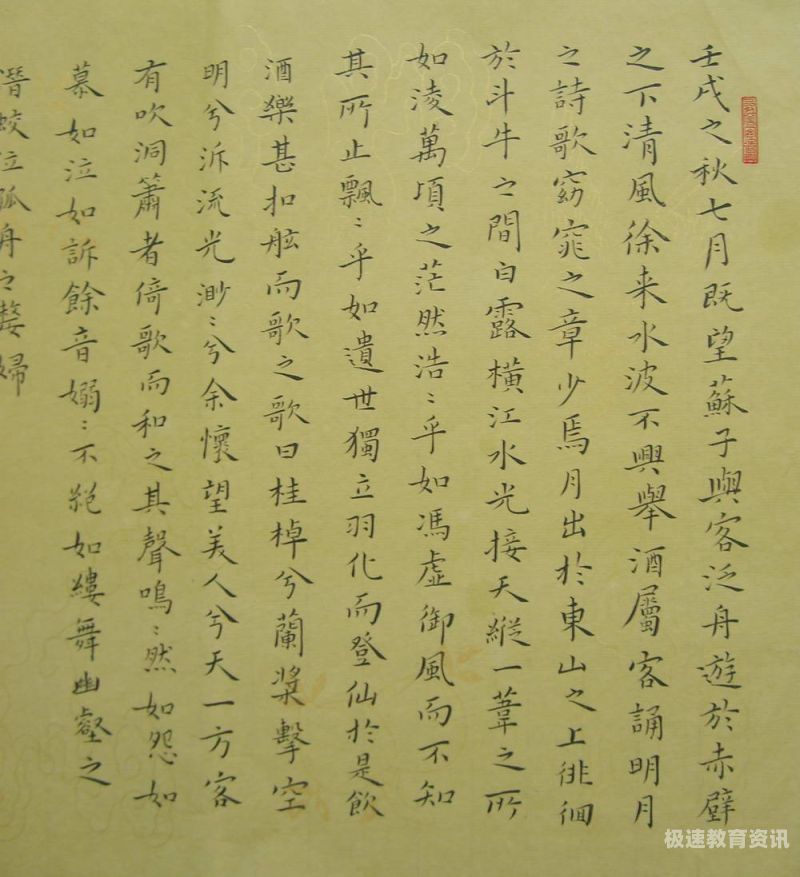 壬戌之秋七月既望蘇子與客泛舟遊於赤壁
之下清風徐来水波不興舉酒屬客誦明月
之詩歌窈窕之章少焉月出於東山之上徘徊
於斗牛之間白露橫江水光接天縱一葦之所
如淩萬頃之茫然浩〻乎如馮虛御風而不知
其所止飄〻乎如遺世獨立羽化而登仙於是飲
酒樂甚扣舷而歌之歌曰桂棹兮蘭槳擊空
明兮泝流光渺〻兮余懷望美人兮天一方客
有吹洞簫者倚歌而和之其聲嗚〻然如怨如
慕如泣如訴餘音嫋〻不絕如縷舞幽壑之
潛蛟泣孤舟之嫠婦
极速教育资讯